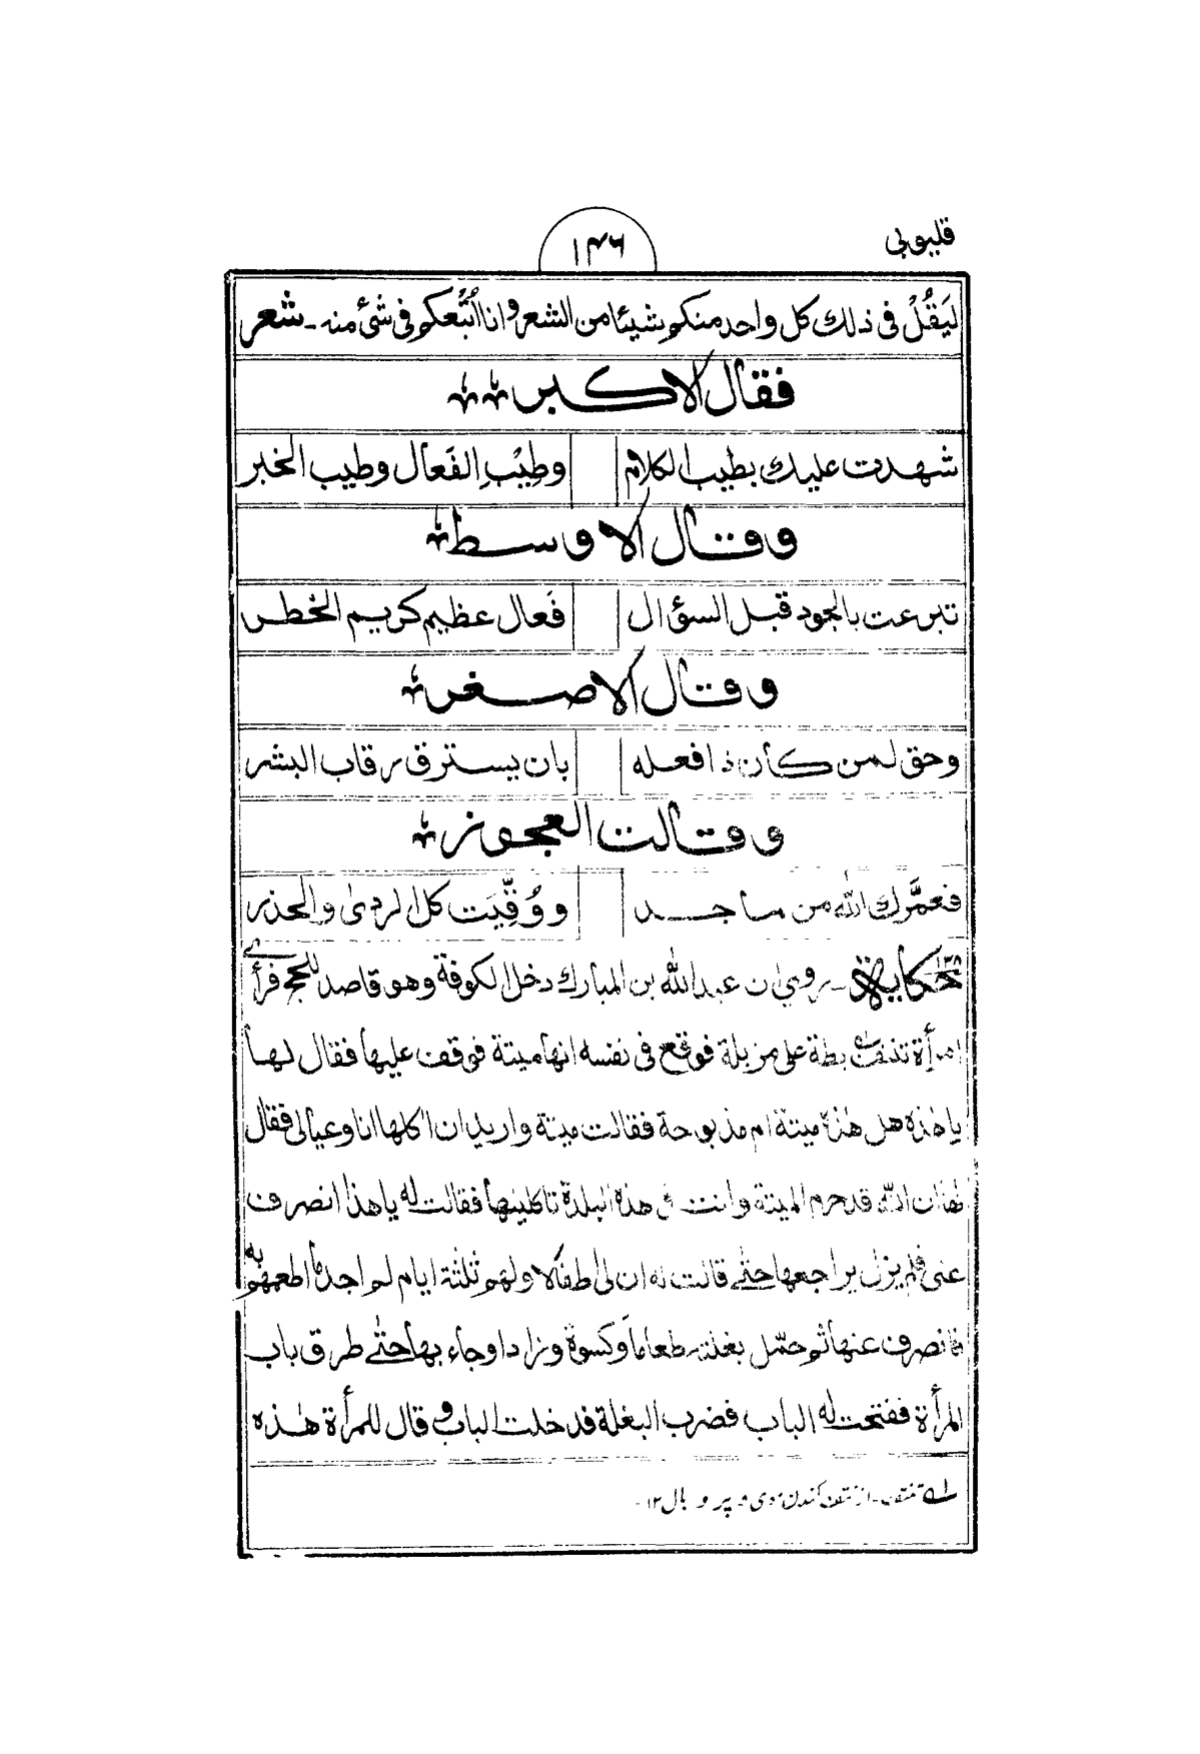 قليوبي
١٤٦
لِيَقُلْ في ذلك كل واحد منكم شيئا من الشعر و انا اتبعكم في شئ منه ـ شعر
فقال الاكبر
شهدت عليك بطيب الكلام وطِيْبِ الفَعال وطيب الخبر
وقال الاوسط
تبرعت بالجود قبل السؤال فَعال عظيم كريم الخطر
وقال الاصغر
وحق لمن كان ذا فعله بان يسترق رقاب البشر
وقالت العجوز
فعمَّرك الله من ماجد ووُقِّيَت كل الردىٰ والحذر
حكاية ١٣٨ ـ روي ان عبد الله بن المبارك دخل الكوفة وهو قاصد للحج فرأى
امرأة تنتف بطة على مزبلة فوقع في نفسه انها ميتة فوقف عليها فقال لها
يا هذه هل هذه ميتة ام مذبوحة فقالت ميتة واريد ان اكلها انا وعيالى فقال
لها ان الله قد حرم الميتة وانت في هذه البلدة تاكلينها فقالت له يا هذا انصرف
عني فلم يزل يراجعها حتىٰ قالت له ان لى اطفالا ولهم ثلثة ايام لم اجد ما اطعمهم به
فانصرف عنها ثم حمّل بغلته طعاماً وكسوة وزادا وجاء بها حتىٰ طرق باب
المرأة ففتحت له الباب فضرب البغلة فدخلت الباب و قال للمرأة هٰذه
لے تنتف ـ از نتف كندن موى و پر و بال ١٢ ـ